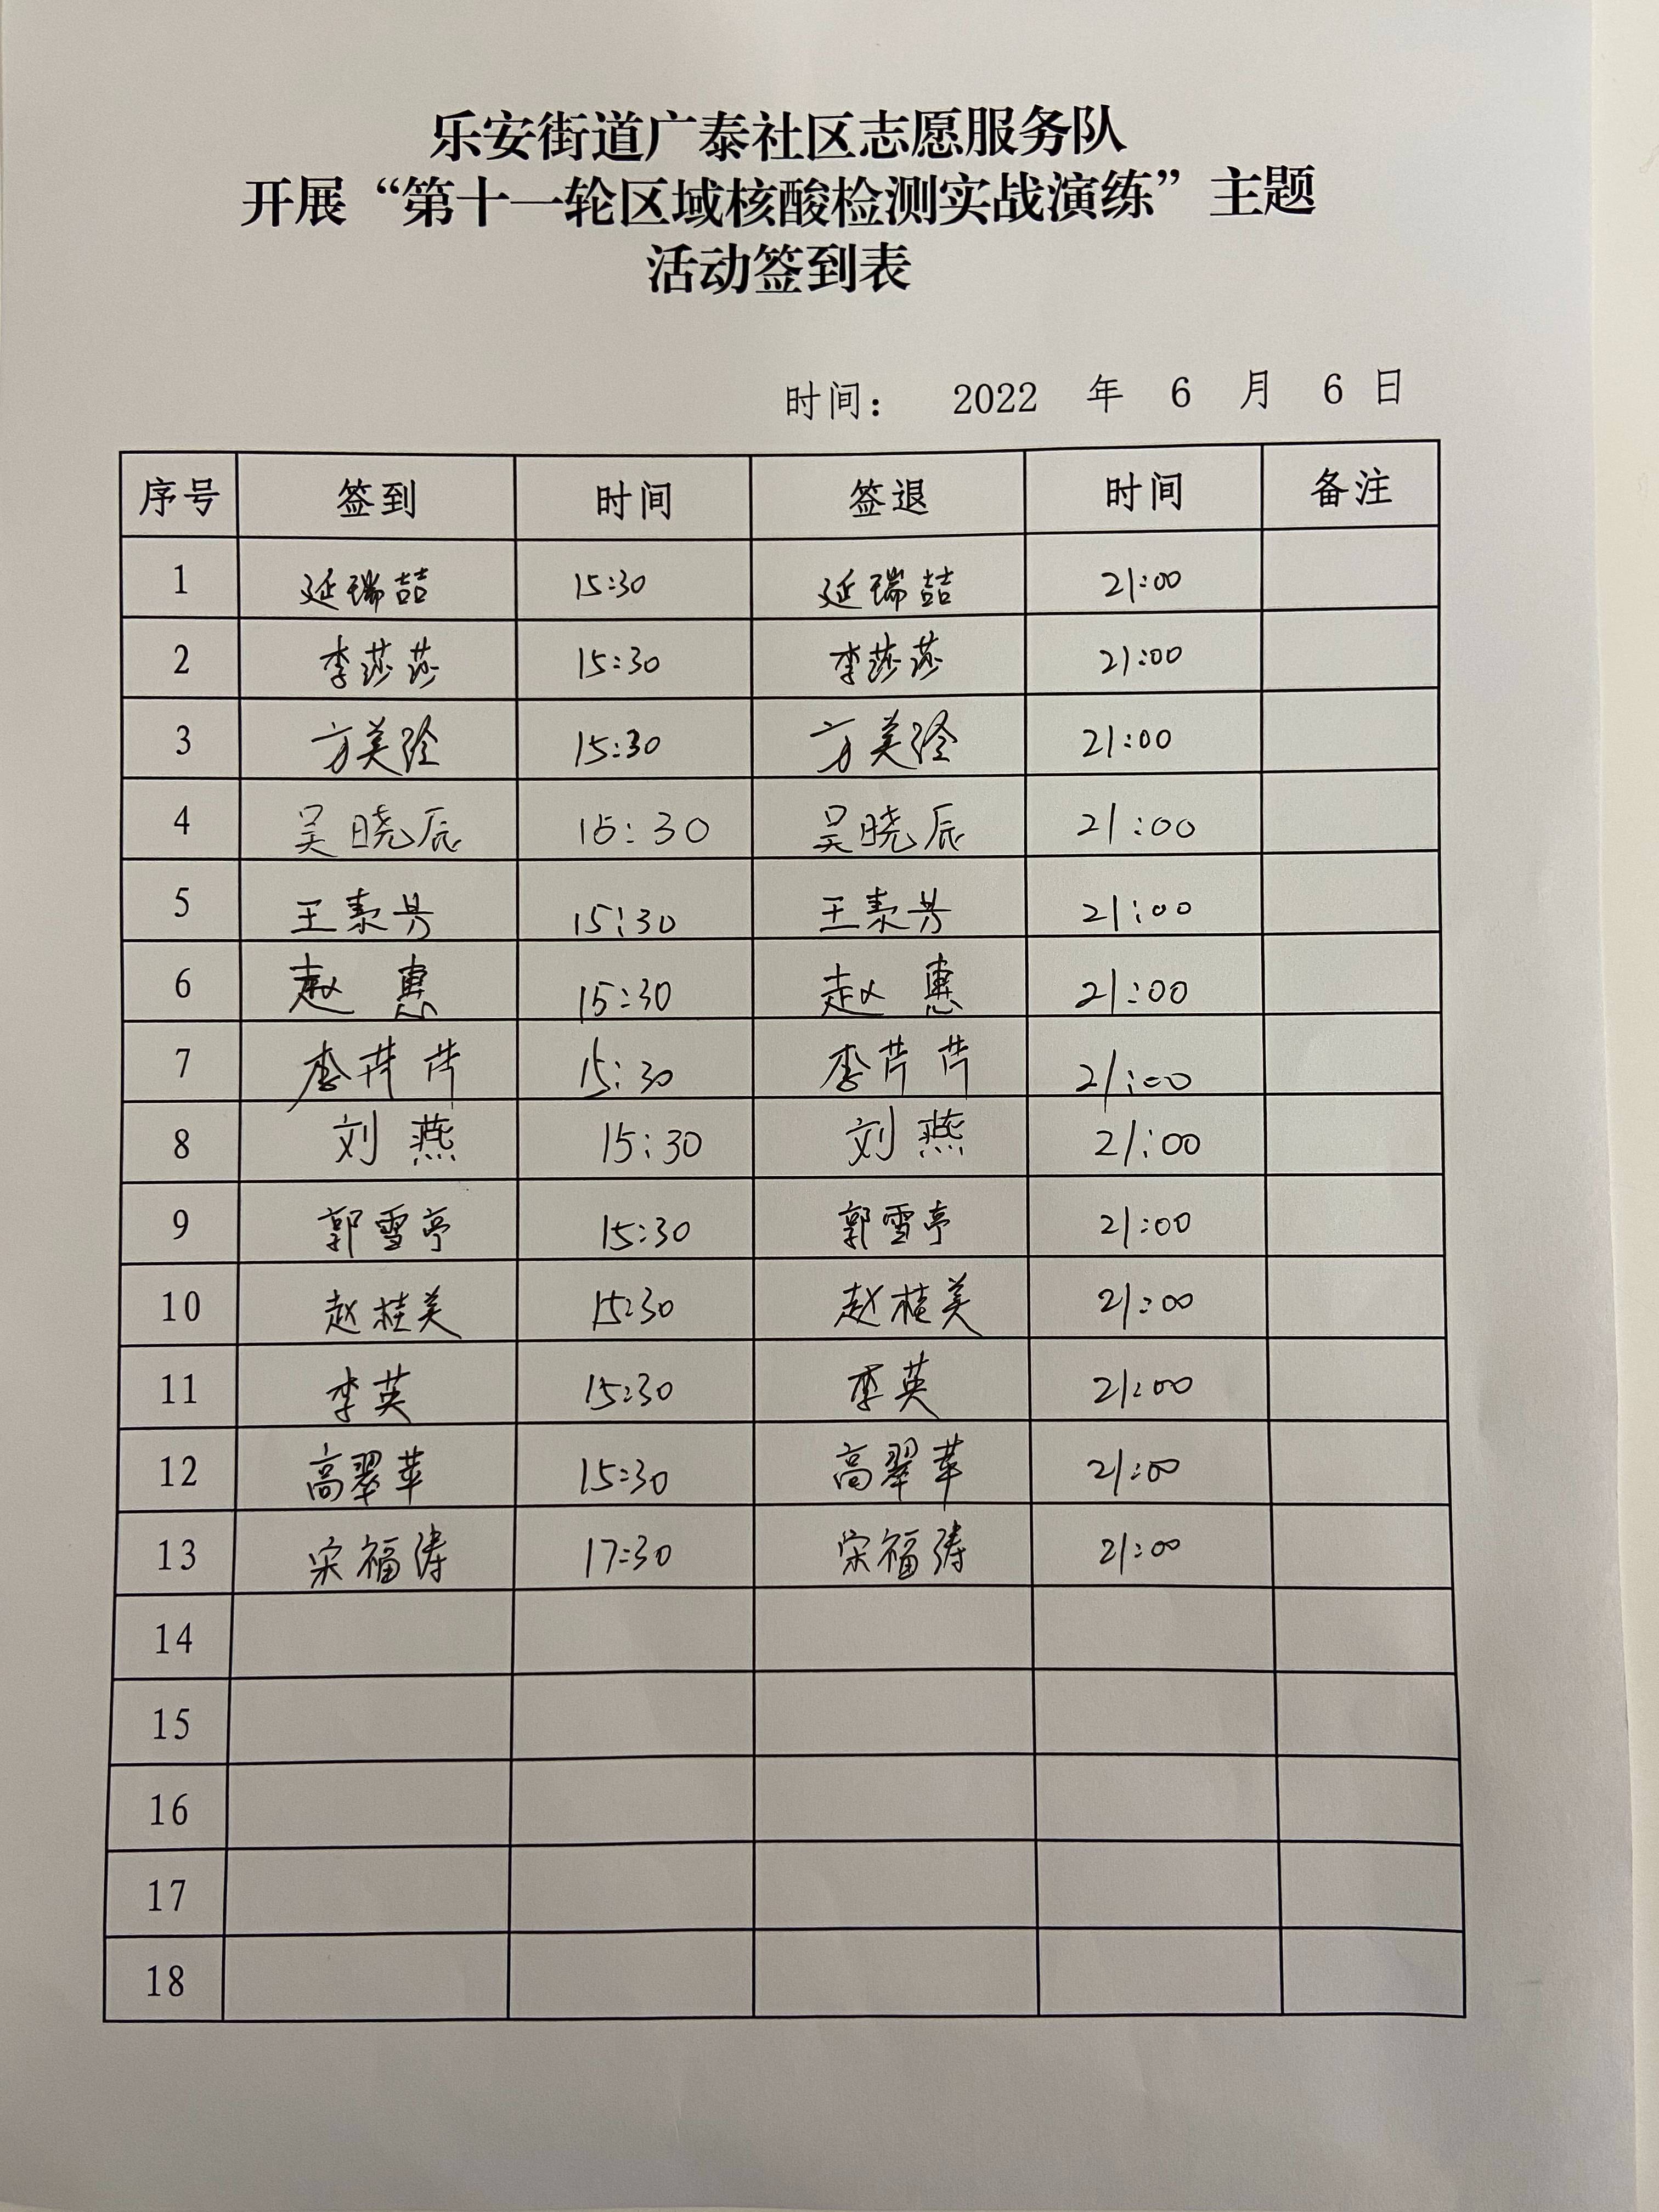 乐安街道广泰社区志愿服务队
开展“第十一轮区域核酸检测实战演练”主题
活动签到表
时间： 2022 年 6 月 6 日
序号 签到 时间 签退 时间 备注
1 延瑞喆 15:30 延瑞喆 21:00
2 李莎莎 15:30 李莎莎 21:00
3 15:30 21:00
4 吴晓辰 15:30 吴晓辰 21:00
5 15:30 21:00
6 赵惠 15:30 赵惠 21:00
7 李芹芹 15:30 李芹芹 21:00
8 刘燕 15:30 刘燕 21:00
9 郭雪亭 15:30 郭雪亭 21:00
10 赵桂美 15:30 赵桂美 21:00
11 李英 15:30 李英 21:00
12 高翠苹 15:30 高翠苹 21:00
13 宋福涛 17:30 宋福涛 21:00
14
15
16
17
18